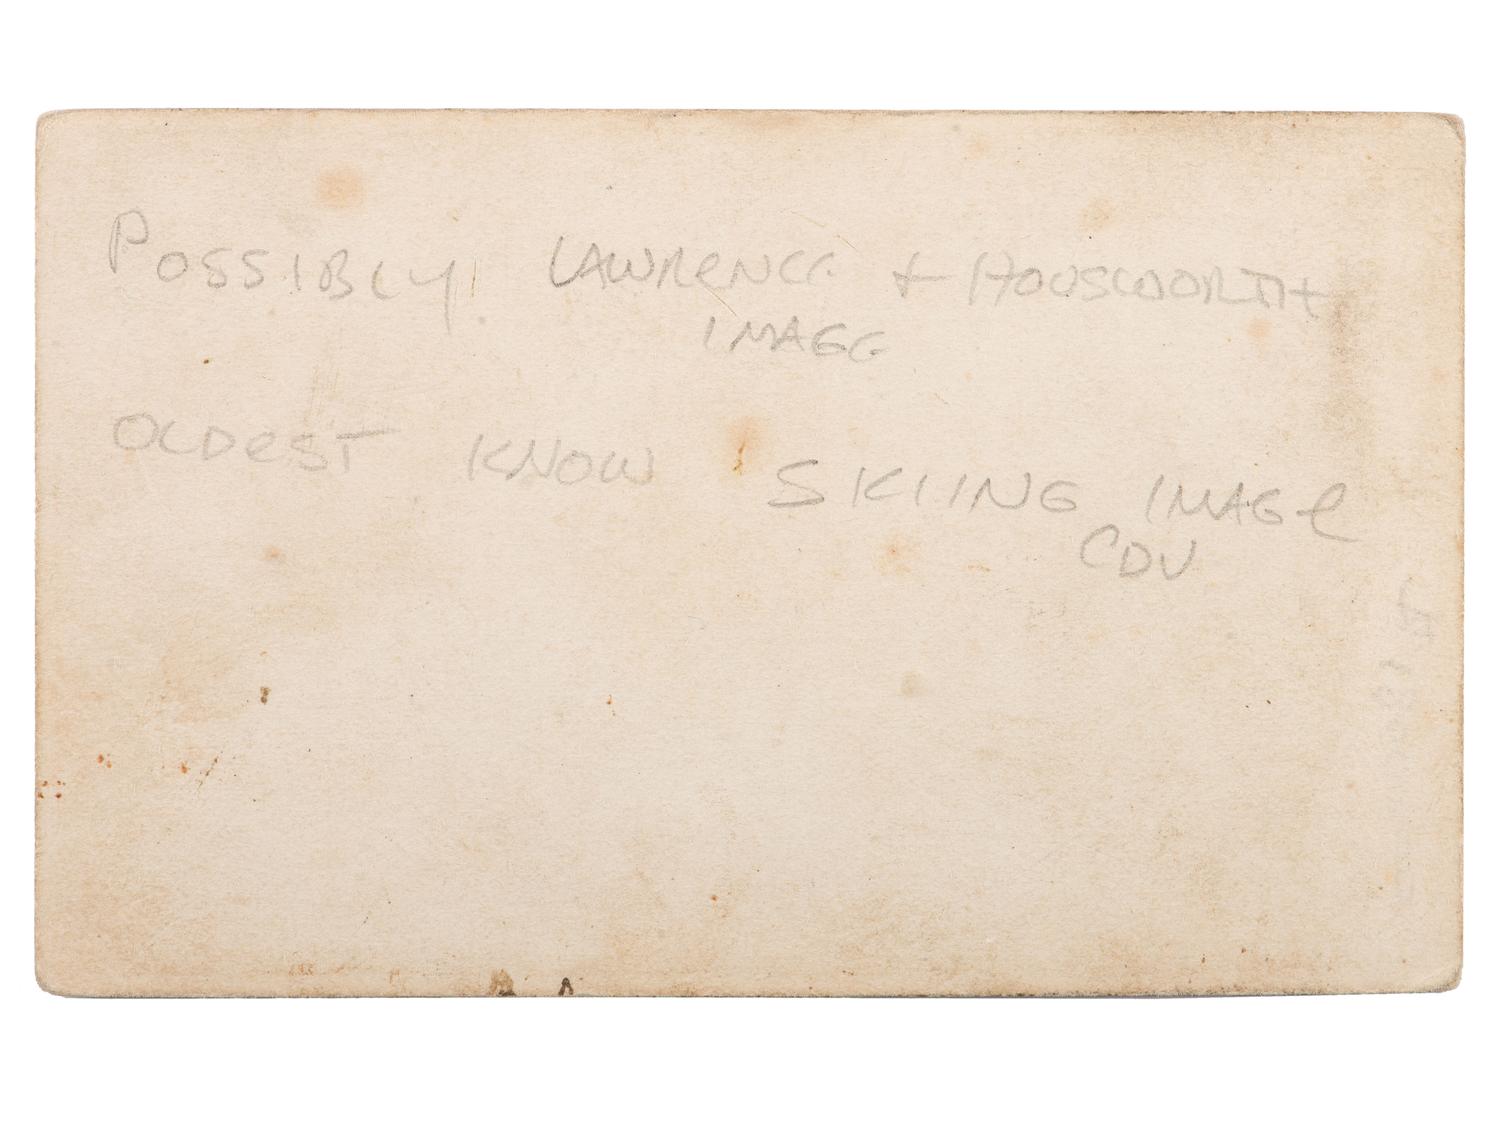 POSSIBLY LAWRENCE + HOUSEWORTH
IMAGE
OLDEST KNOW SKIING IMAGE
CDV